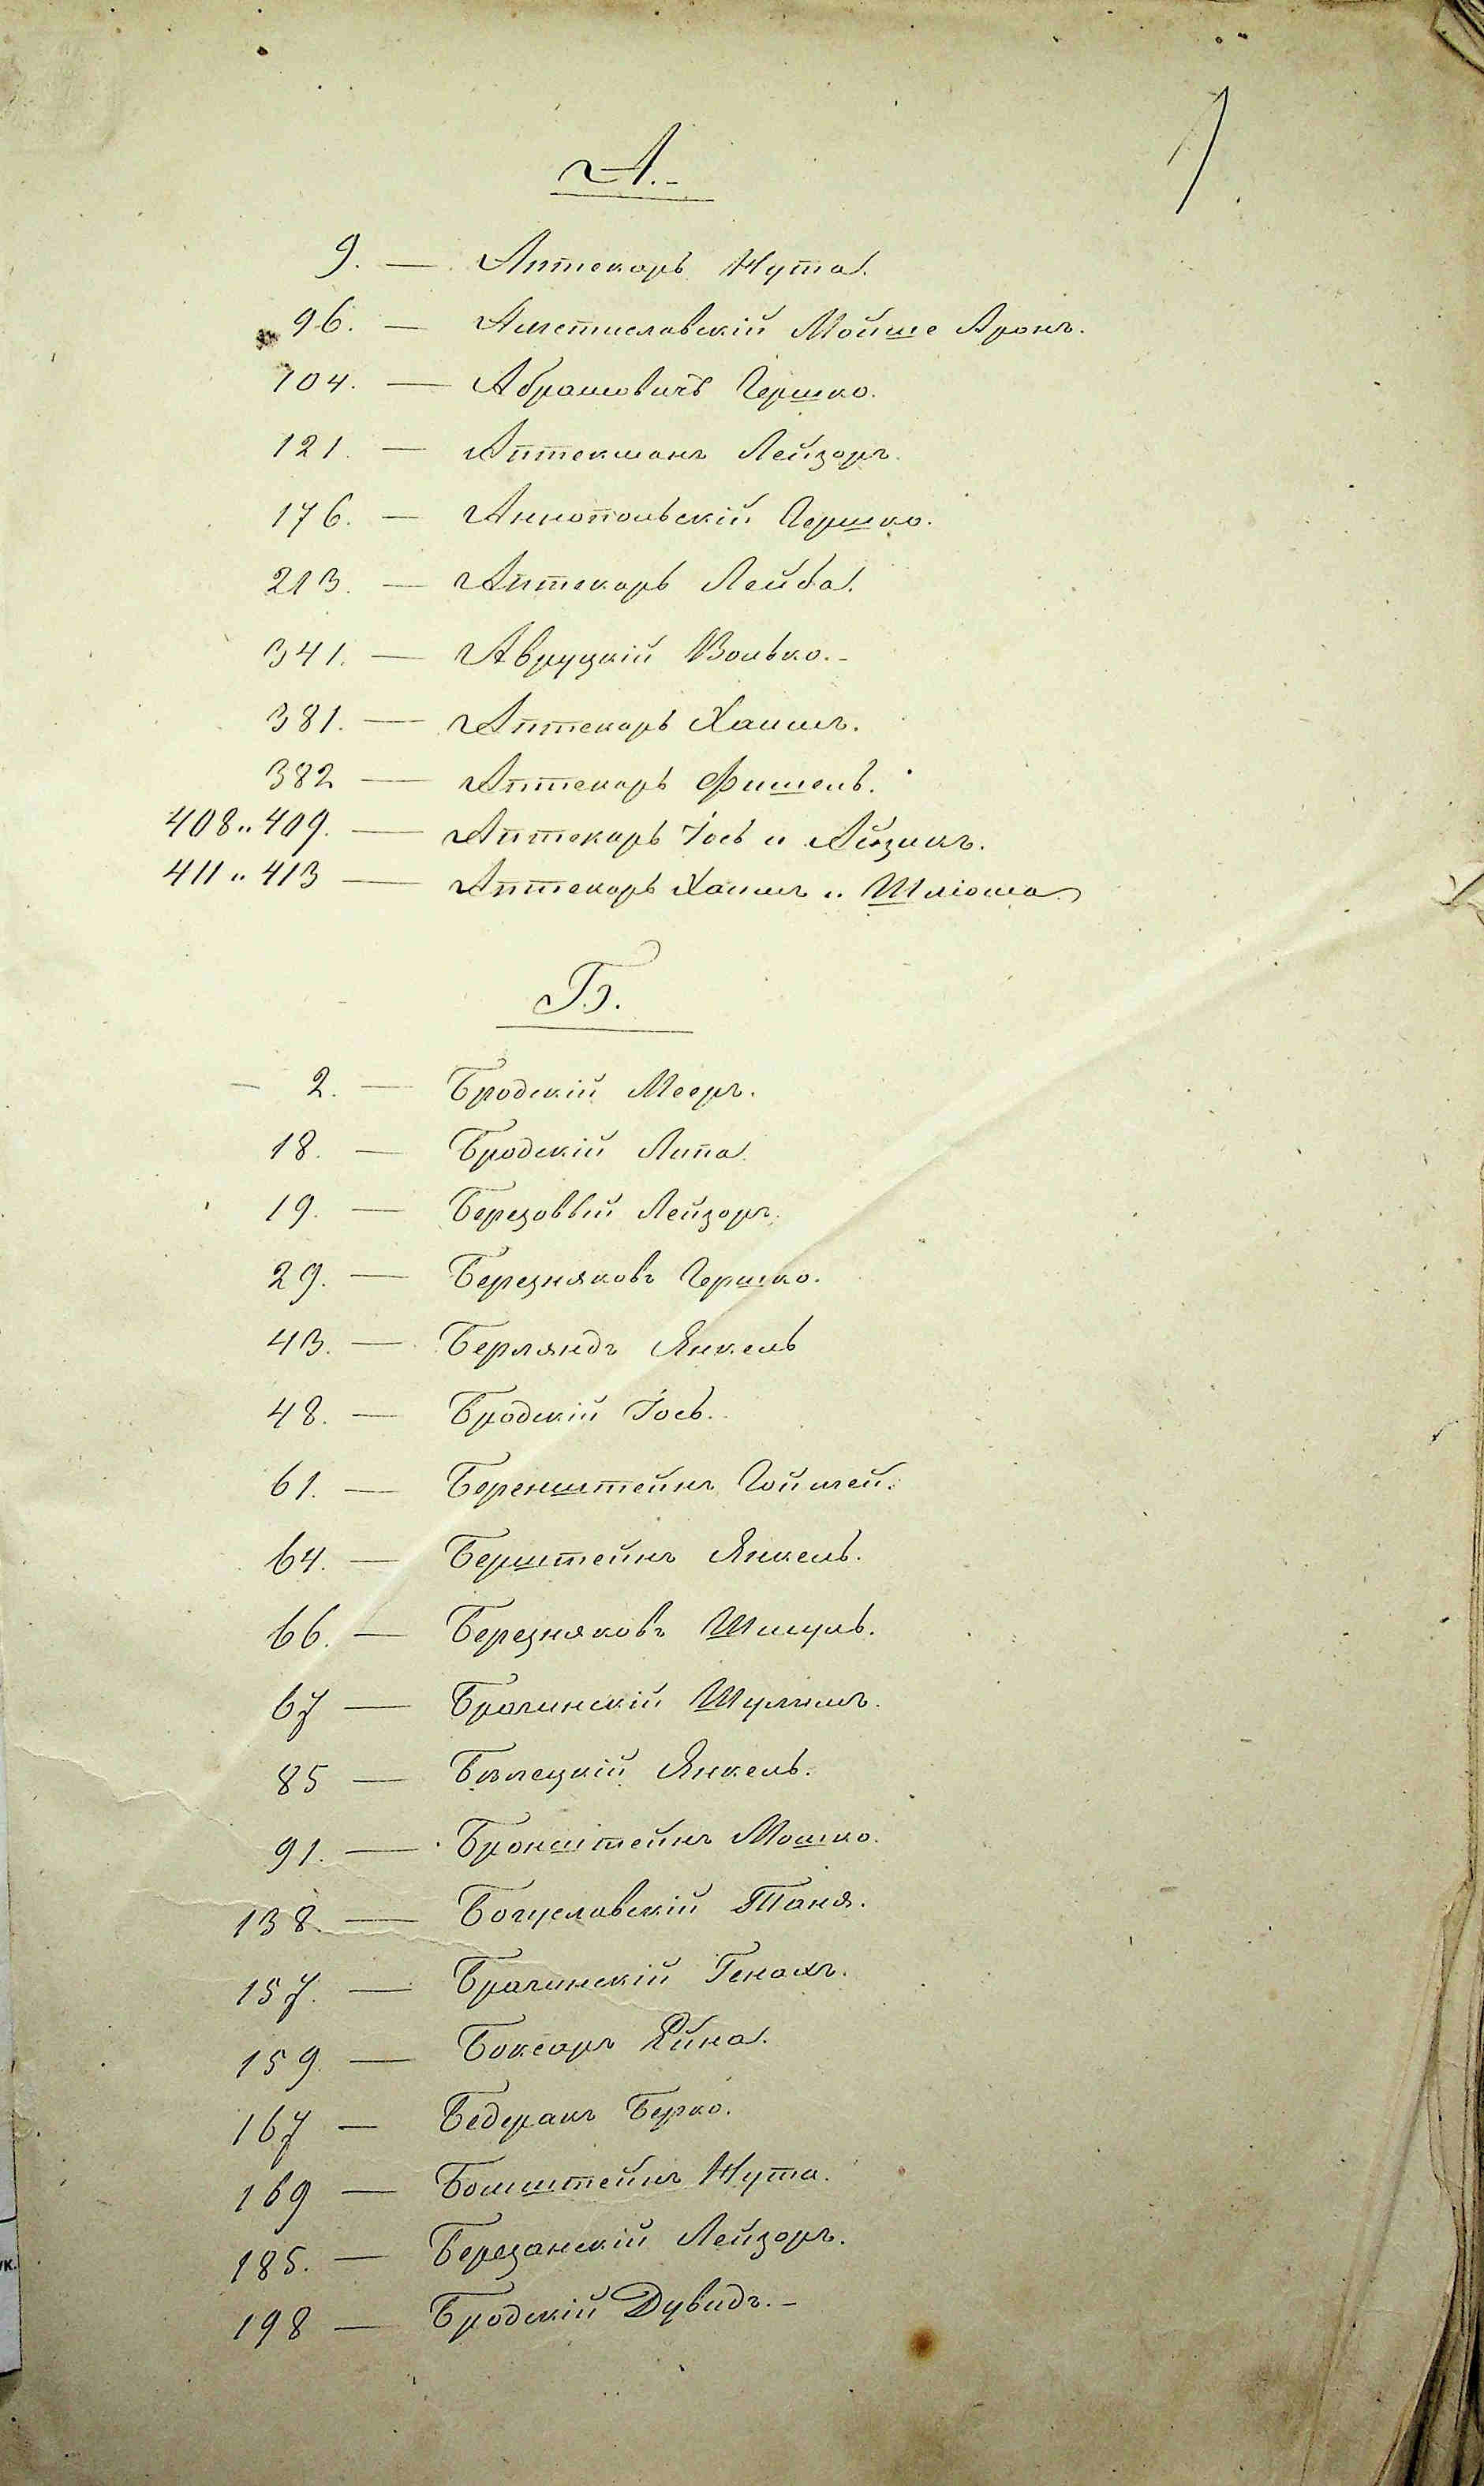 1
А.-
9. — Аптекарь Нута.
96. — Амстиславскій Мойше Аронъ.
104. — Абрамовичъ Гершко.
121. — Аптекманъ Лейзоръ.
176. — Аннопольскій Гершко.
213. — Аптекарь Лейба.
341. — Авруцкій Волько.-
381. — Аптекарь Хаимъ.
382 — Аптекарь Фишель.
408 и 409. — Аптекарь Іось и Айзикъ.
411 и 413 — Аптекарь Хаимъ и Шліома
Б.
2. — Бродскій Мееръ.
18. — Бродскій Липа.
19. — Березовый Лейзоръ.
29. — Березняковъ Гершко.
43. — Берляндъ Янкель
48. — Бродскій Іось.
61. — Беренштейнъ
64. — Берштейнъ Янкель.
66. — Березняковъ Шмуль.
67 — Брагинскій Шулимъ.
85 — Бѣлецкій Янкель.
91. — Бронштейнъ Мошко.
138. — Богуславскій Таня.
157. — Брагинскій Генахъ.
159. — Боксаръ
167 — Бедеракъ Берко.
169 — Бомштейнъ Нута.
185. — Березанскій Лейзоръ.
198 — Бродскій Дувидъ.-
ук.